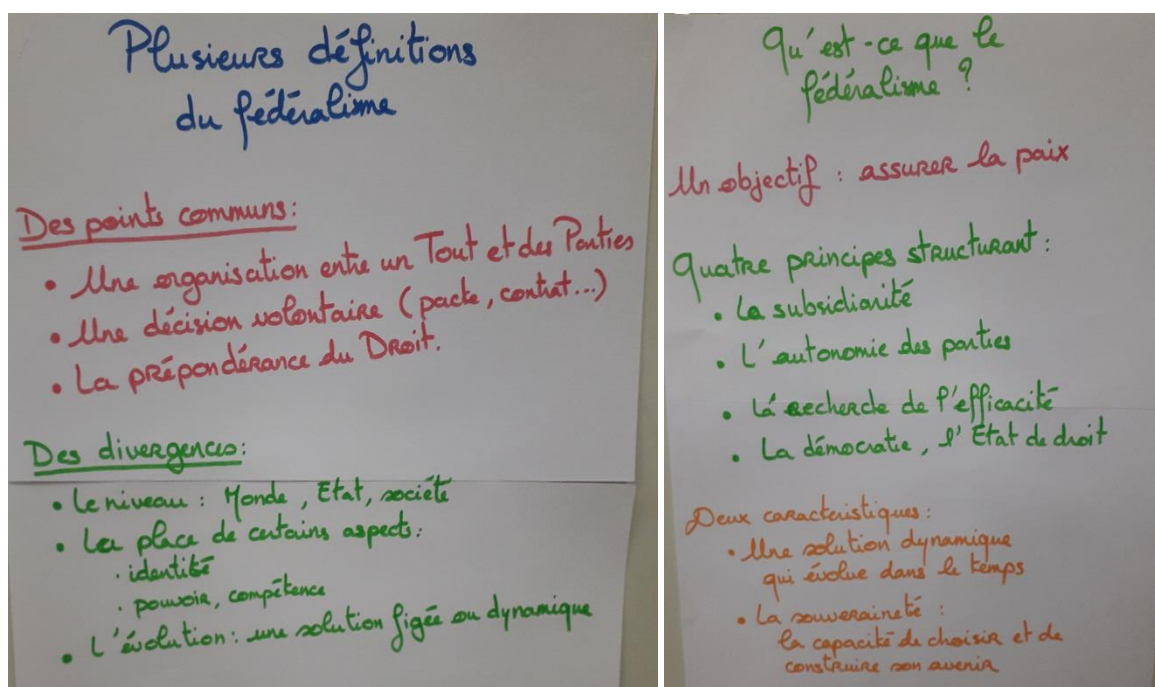 Plusieurs définitions
du fédéralisme
Des points communs :
• Une organisation entre un Tout et des Parties
• Une décision volontaire (pacte, contrat...)
• La prépondérance du Droit.
Des divergences :
• Le niveau : Monde, Etat, société
• La place de certains aspects :
. identité
. pouvoir, compétence
• L'évolution : une solution figée ou dynamique
Qu'est-ce que le
fédéralisme ?
Un objectif : assurer la paix
Quatre principes structurant :
• La subsidiarité
• L'autonomie des parties
• La recherche de l'efficacité
• La démocratie, l'Etat de droit
Deux caractéristiques :
• Une solution dynamique
qui évolue dans le temps
• La souveraineté :
la capacité de choisir et de
construire son avenir